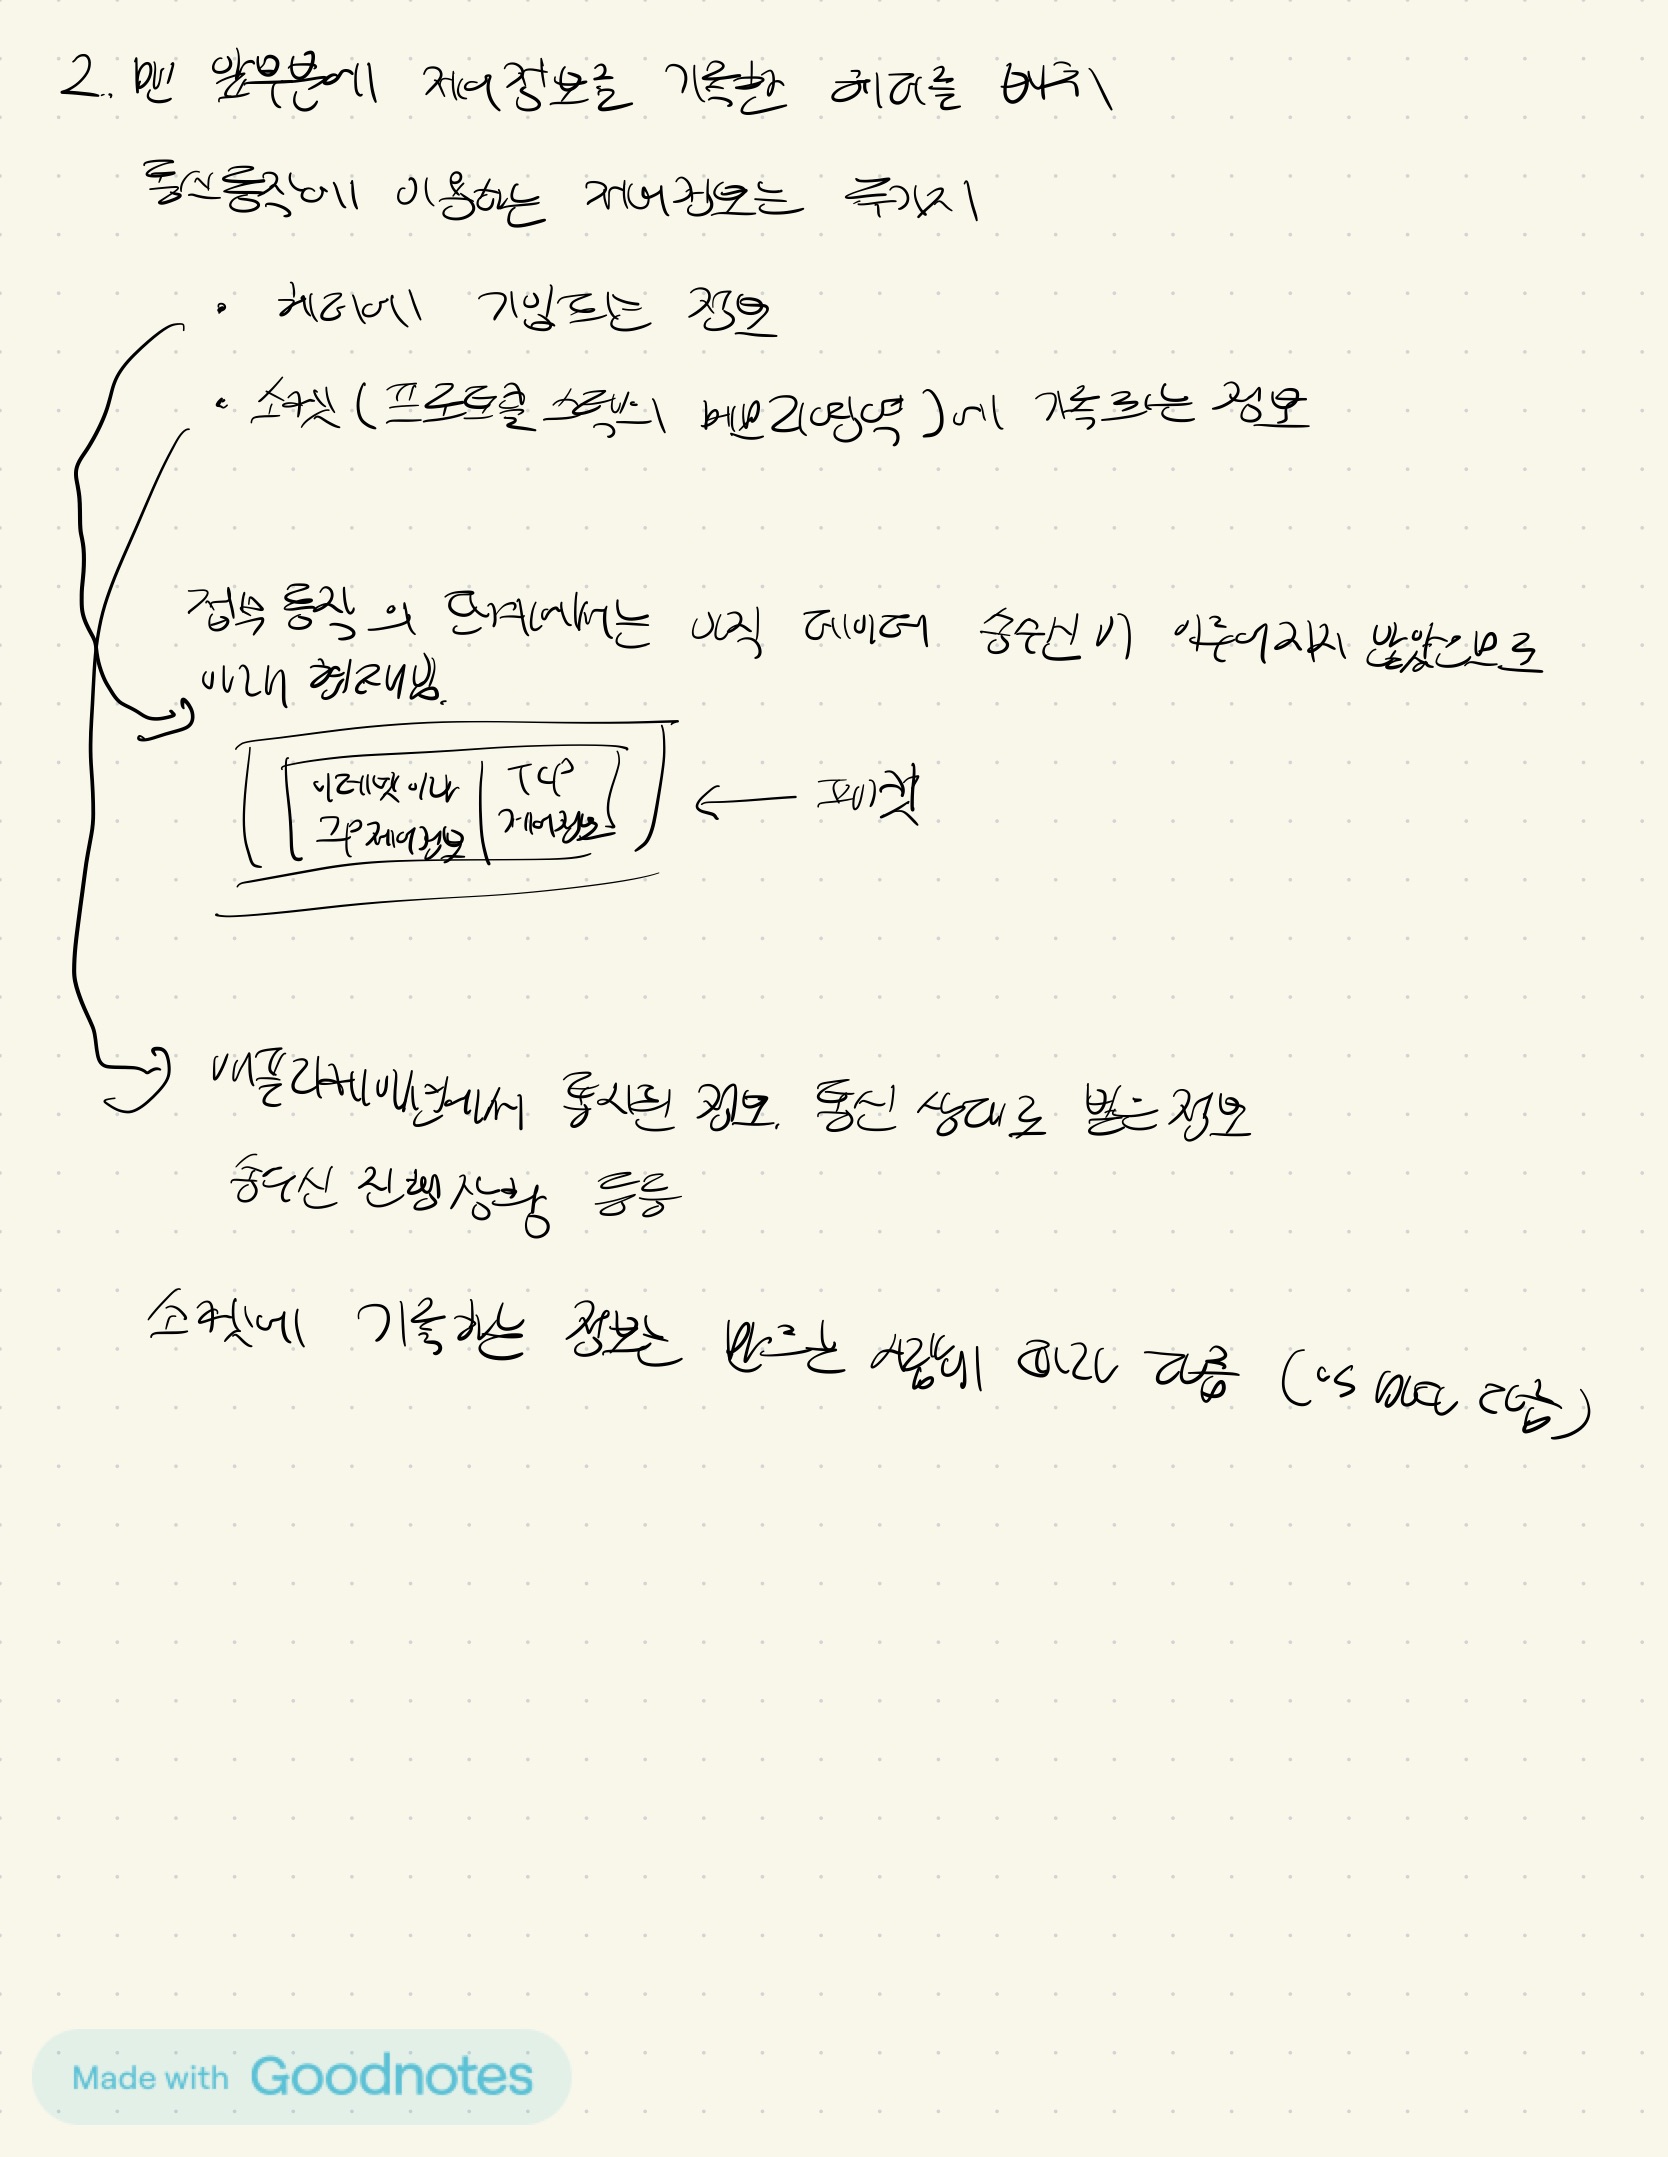 2. 맨 앞부분에 제어정보를 기록한 헤더를 배치
통신동작에 이용하는 제어정보는 두가지
• 헤더에 기입되는 정보
• 소켓(프로토콜 스택의 메모리영역)에 기록되는 정보
접속 동작의 단계에서는 아직 데이터 송수신이 이루어지지 않았으므로
아래 형태임.
이더넷이나 TCP
IP 제어정보 제어정보
← 패킷
애플리케이션에서 통지된 정보. 통신 상대로 받은 정보
송수신 진행상황 등등
소켓에 기록하는 정보는 만드는 사람에 따라 다름 (OS 마다 다름)
Made with Goodnotes